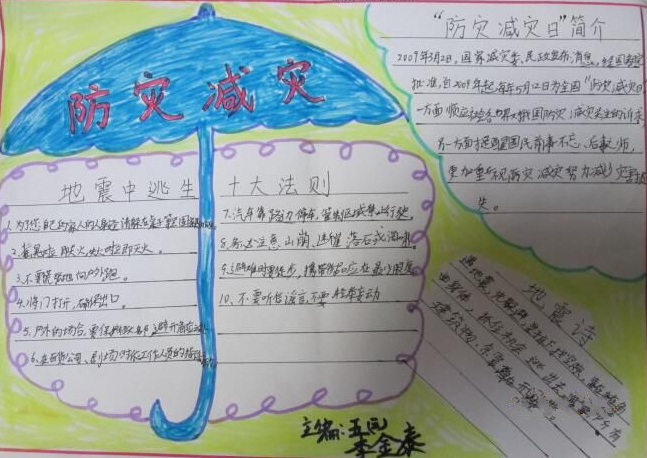 防灾减灾
地震中逃生十大法则
1.为了您自己和家人的人身安全请躲在桌子等坚固家具
2.摇晃时 关火 失火时立即灭火。
3.不要慌张地向户外跑。
4.将门打开,确保出口。
5.户外的场合,要保护好头部,避开危险
6.在百货公司、剧场时依工作人员的指
7.汽车靠路边停车,管制区域禁止行驶
8.务必注意山崩、断崖落石或海啸。
9.避难时要徒步,携带物品应在最少限度
10.不要听信谣言,不要轻举妄动
“防灾减灾日”简介
2009年3月2日,国家减灾委、民政部发布消息,经国务院
批准,自2009年起,每年5月12日为全国“防灾减灾日”
一方面顺应社会各界对我国防灾减灾关注的诉求,
另一方面提醒国民前事不忘、后事之师,
更加重视防灾减灾 努力减少灾害损
失。
地震诗
主编:五(四)
李金泰